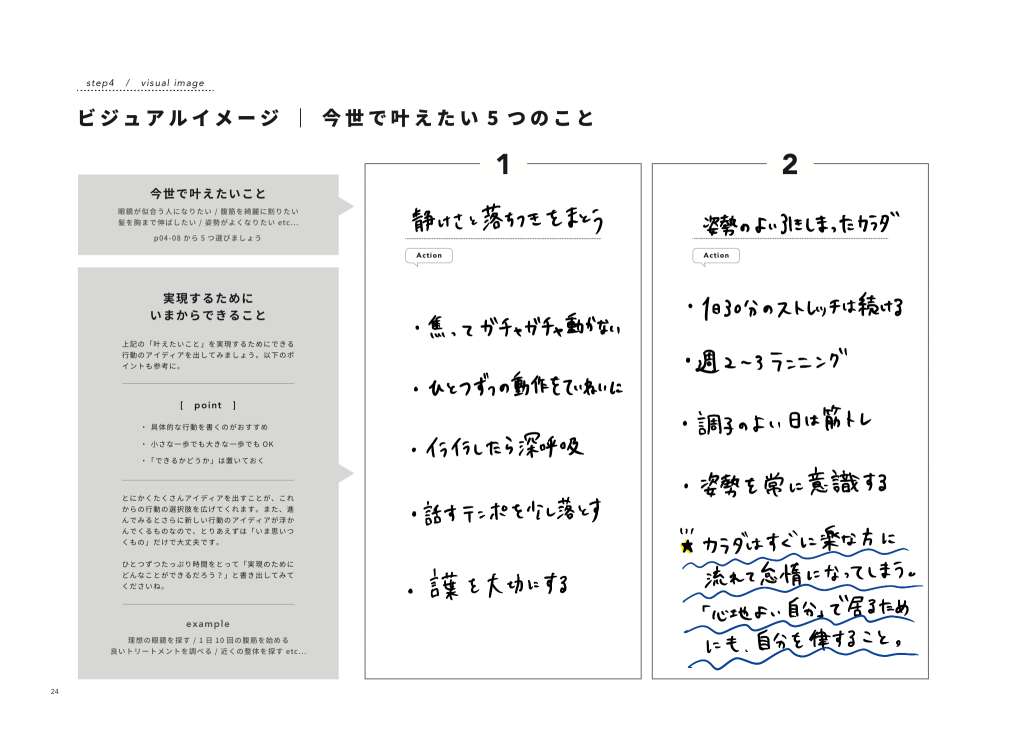 step4 / visual image
ビジュアルイメージ｜今世で叶えたい5つのこと
今世で叶えたいこと
眼鏡が似合う人になりたい / 腹筋を綺麗に割りたい
髪を胸まで伸ばしたい / 姿勢がよくなりたい etc...
p04-08 から5つ選びましょう
実現するために
いまからできること
上記の「叶えたいこと」を実現するためにできる
行動のアイディアを出してみましょう。以下のポ
イントも参考に。
[ point ]
・ 具体的な行動を書くのがおすすめ
・ 小さな一歩でも大きな一歩でも OK
・「できるかどうか」は置いておく
とにかくたくさんアイディアを出すことが、これ
からの行動の選択肢を広げてくれます。また、進
んでみるとさらに新しい行動のアイディアが浮か
んでくるものなので、とりあえずは「いま思いつ
くもの」だけで大丈夫です。
ひとつずつたっぷり時間をとって「実現のために
どんなことができるだろう？」と書き出してみて
くださいね。
example
理想の眼鏡を探す / 1日10回の腹筋を始める
良いトリートメントを調べる / 近くの整体を探す etc...
1
静けさと落ちつきをまとう
Action
・焦ってガチャガチャ動かない
・ひとつずつの動作をていねいに
・イライラしたら深呼吸
・話すテンポを少し落とす
・言葉を大切にする
2
姿勢のよい引きしまったカラダ
Action
・1日30分のストレッチは続ける
・週2〜3ランニング
・調子のよい日は筋トレ
・姿勢を常に意識する
★カラダはすぐに楽な方に
流れて怠惰になってしまう。
「心地よい自分」で居るため
にも、自分を律すること。
24